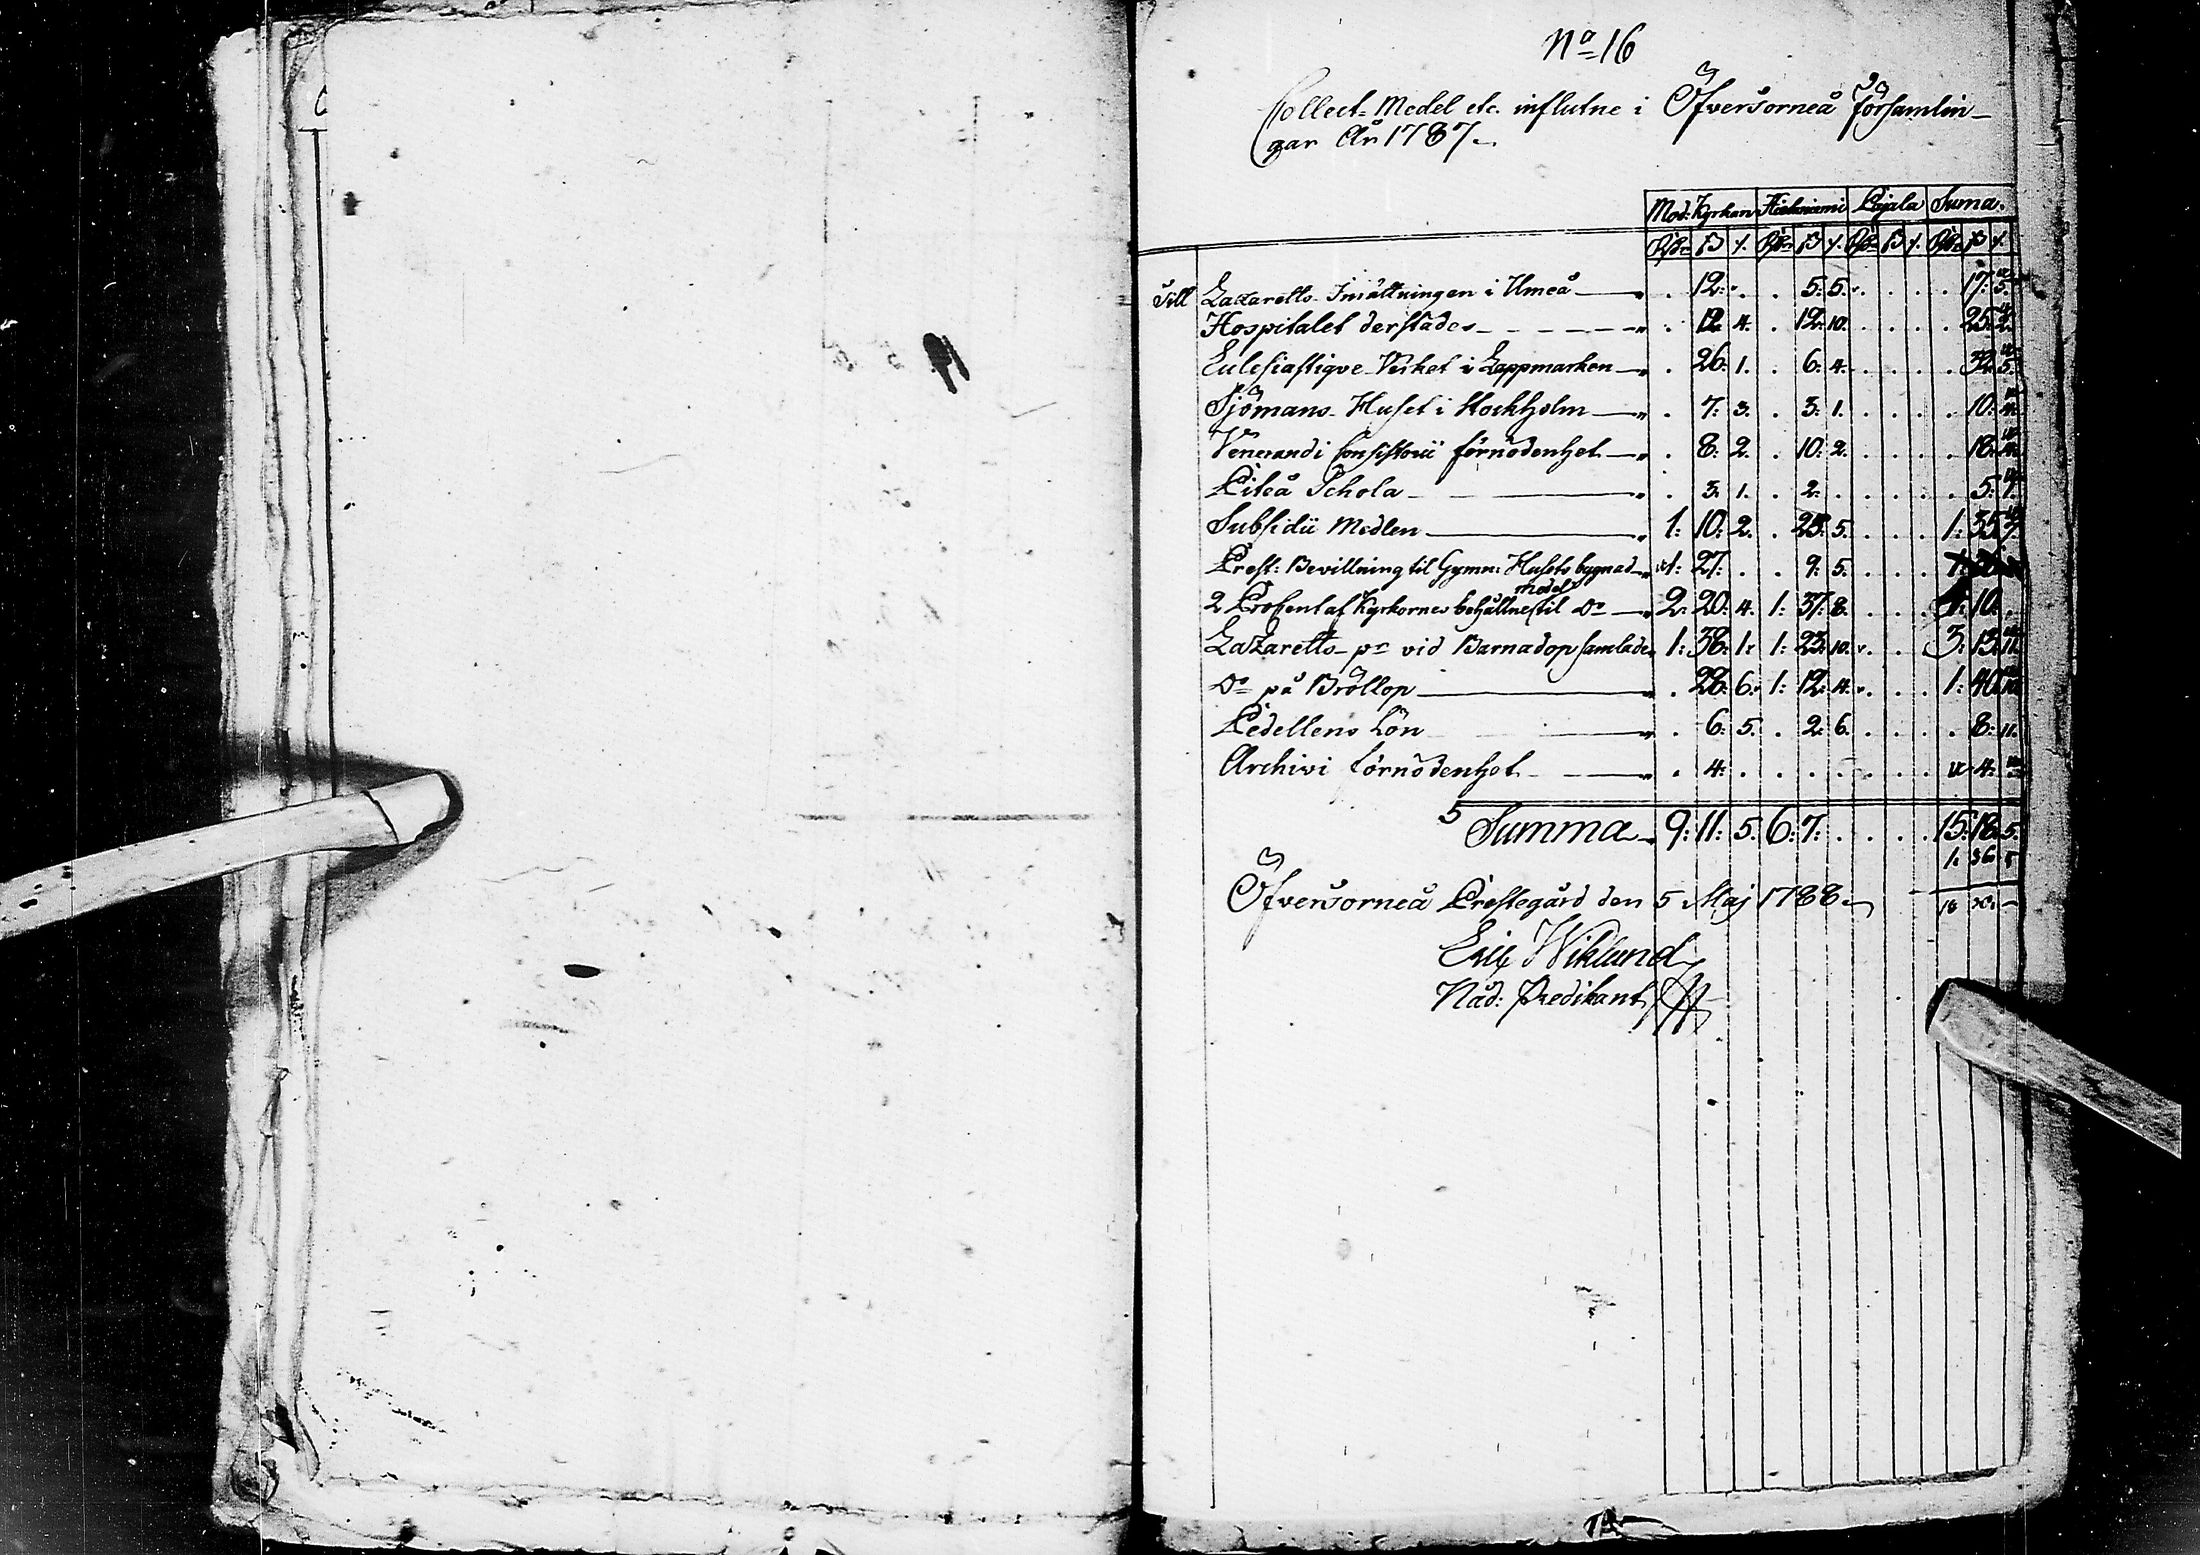 No 16
Collect-Medel etc. influtne i Öfvertorneå Församlin-
gar År 1787.
Mod: Kyrkan Hietaniemi Pajala Suma.
Rdr ß r. Rdr ß r. Rdr ß r. Rdr ß r.
Till Lazaretts-Inrättningen i Umeå . 12: . . 5: 5. . . . . 17: 5.
Hospitalet derstädes . 12. 4. . 12: 10. . . . . 25: 2.
Ecclesiastiqve-Verket i Lappmarken . 26. 1. . 6: 4. . . . . 32: 5.
Sjömans-Huset i Stockholm . 7: 3. . 3: 1. . . . . 10: 4.
Venerandi Consistorii förnödenhet . 8: 2. . 10: 2. . . . . 18: 4.
Piteå Schola . 3. 1. . 2. . . . . . 5: 1.
Subsidii Medlen 1: 10: 2. . 25: 5. . . . 1: 35: 7.
Prest: Bevillning til Gymn: Husets bygnad 1: 27: . . 9: 5. . . .
medel
2 Procent af Kyrkornes behållne til Do 2: 20: 4. 1: 37: 8. . . . 10: .
Lazaretts-pr vid Barnadop samlade 1: 38: 1. 1: 23: 10. . . 3: 13: 11.
Do på Bröllop . 28: 6. 1: 12: 4. . . . 1: 40: 10.
Pedellens Lön . 6: 5. . 2: 6. . . . . 8: 11.
Archivi förnödenhet . 4: . . . . . . . 4:
Summa 9: 11: 5. 6: 7: . . . . 15: 18: 5.
1. 36 5
Öfvertorneå Prestegård den 5 Maj 1788.
Eric Wiklund
Nåd: Predikant